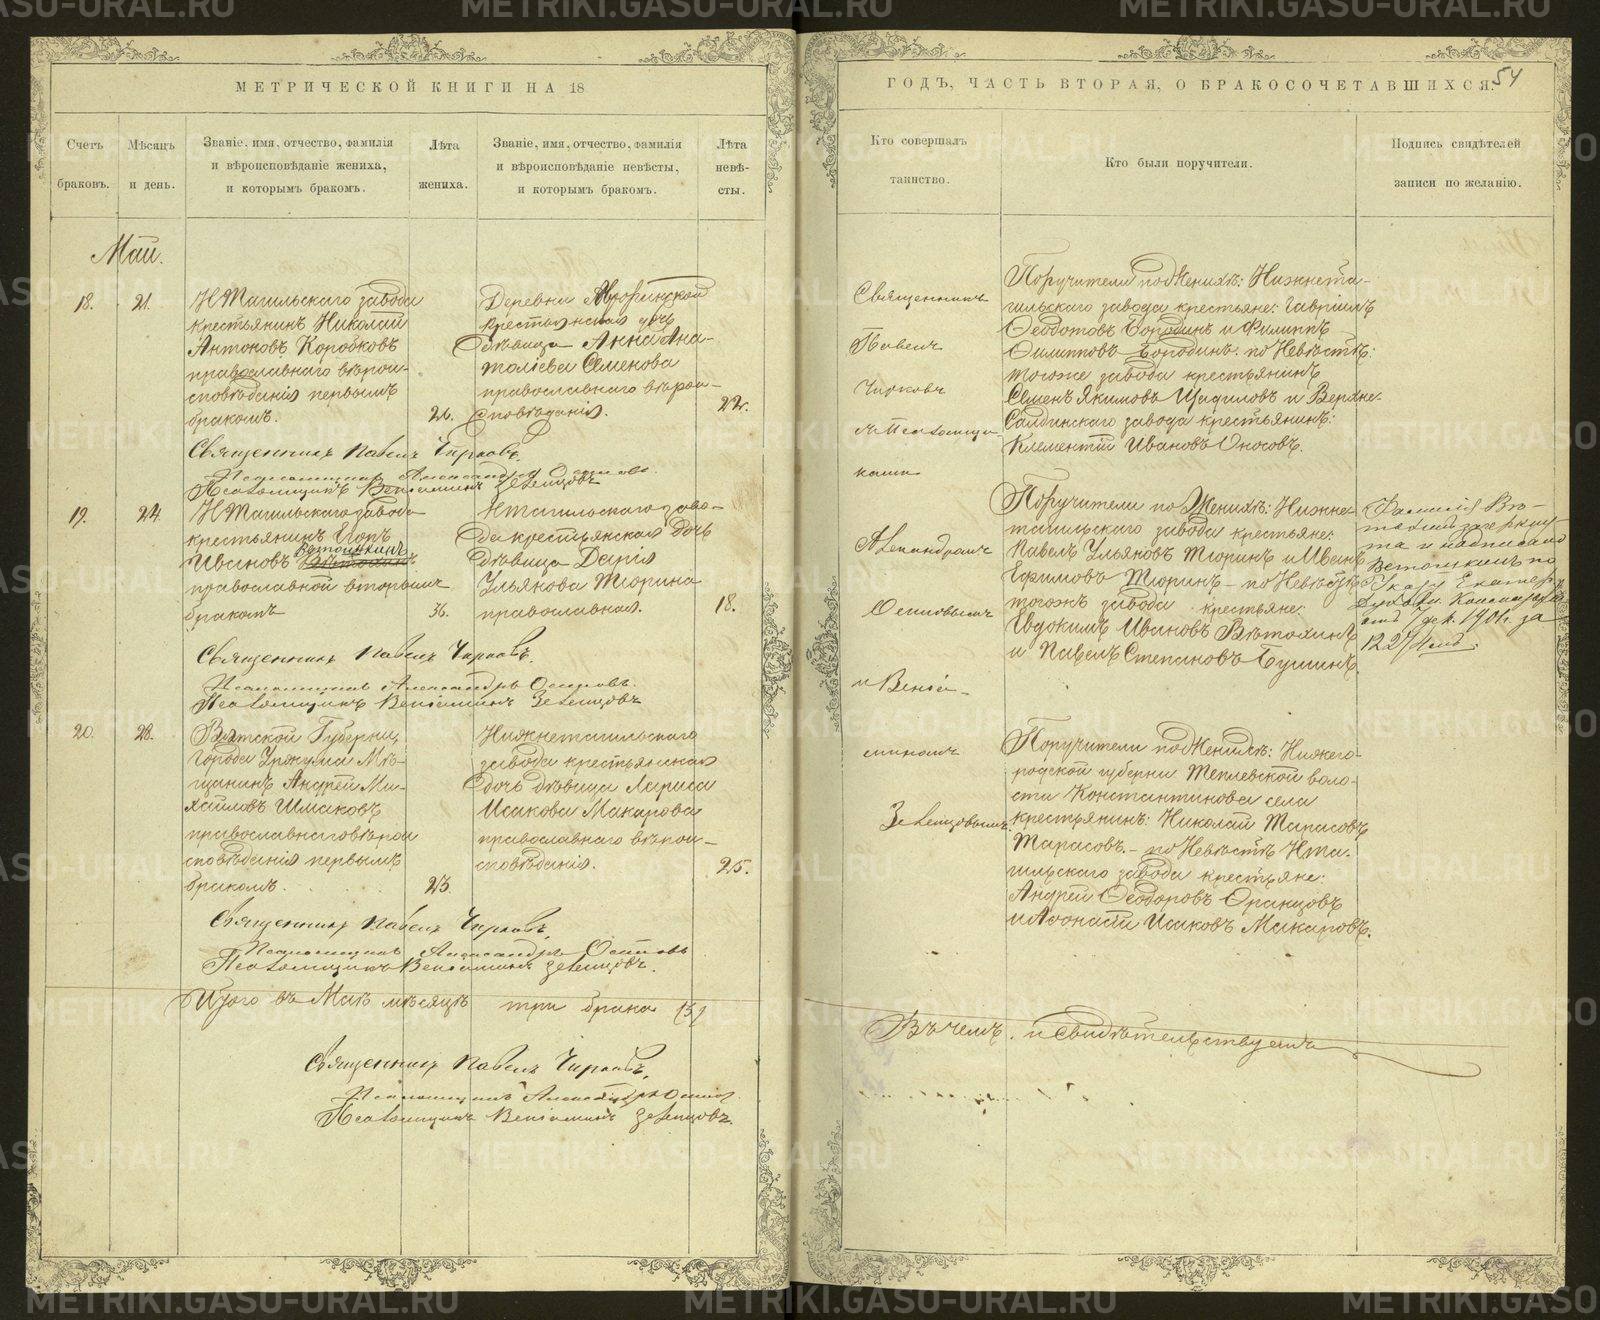 МЕТРИЧЕСКОЙ КНИГИ НА 18
Счетъ браковъ.
Мѣсяцъ и день.
Званіе, имя, отчество, фамилія
и вѣроисповѣданіе жениха,
и которымъ бракомъ.
Лѣта
жениха.
Званіе, имя, отчество, фамилія
и вѣроисповѣданіе невѣсты,
и которымъ бракомъ.
Лѣта
невѣ-
сты.
Май.
18.
21.
НТагильскаго завода
крестьянинъ Николай
Антоновъ Коробковъ
православнаго вѣрои-
сповѣданія первымъ
бракомъ.
26.
Деревни
крестьянская дочь
дѣвица Анна Ана-
толіева Семенова
православнаго вѣрои-
сповѣданія.
22.
Священникъ Павелъ Чирковъ.
Псаломщикъ Александръ Осиповъ.
Псаломщикъ Веніаминъ Зеленцовъ
19.
24.
НТагильскаго завода
крестьянинъ
Ивановъ Ветошкинъ
православной вторымъ
бракомъ
36.
Нтагильскаго заво-
да крестьянская дочь
дѣвица Дарія
Ульянова Тюрина
православная.
18.
Священникъ Павелъ Чирковъ.
Псаломщикъ Александръ Осиповъ.
Псаломщикъ Веніаминъ Зеленцовъ
20.
28.
Вятской Губерніи
города Уржума Мѣ-
щанинъ Андрей Ми-
хаиловъ Шмаковъ
православнаго вѣрои
сповѣданія первымъ
бракомъ.
23.
Нижнетагильскаго
завода крестьянская
дочь дѣвица Лариса
Исакова Макарова
православнаго вѣрои-
сповѣданія.
25.
Священникъ Павелъ Чирковъ.
Псаломщикъ Александръ Осиповъ
Псаломщикъ Веніаминъ Зеленцовъ.
Итого въ Маѣ мѣсяцѣ три брака (3)
Священникъ Павелъ Чирковъ.
Псаломщикъ Александръ Осиповъ
Псаломщикъ Веніаминъ Зеленцовъ.
ГОДЪ, ЧАСТЬ ВТОРАЯ, О БРАКОСОЧЕТАВШИХСЯ.
54
Кто совершалъ
таинство.
Кто были поручители.
Подпись свидѣтелей
записи по желанію.
Священникъ
Павелъ
Чирковъ
съ Псаломщи-
ками
Александромъ
Осиповымъ
и Веніа-
миномъ
Зеленцовымъ.
Поручители по Женихѣ: Нижнета-
гильскаго завода крестьяне: Гавріилъ
Ѳеодотовъ Бородинъ и Филиппъ
Филипповъ Бородинъ. по Невѣстѣ:
тогоже завода крестьянинъ
Семенъ Якимовъ Щадиловъ и Верхне-
Салдинскаго завода крестьянинъ:
Климентій Ивановъ Оносовъ.
Поручители по Женихѣ: Нижне-
тагильскаго завода крестьяне:
Павелъ Ульяновъ Тюринъ и Иванъ
Ефимовъ Тюринъ - по Невѣстѣ
тогожъ завода крестьяне:
Евдокимъ Ивановъ Вѣтохинъ
и Павелъ Степановъ Бушинъ.
Фамилія Вѣ-
тохин зачеркну-
та и надписано
Ветошкинъ по
Указу Екатер.
Духовн. Консисторіи
отъ 7 дек. 1901г. за
Поручители по Женихѣ: Нижего-
родской губерніи Теплевской воло-
сти Константинова села
крестьянинъ: Николай Тарасовъ
Тарасовъ. - по Невѣстѣ НТа-
гильскаго завода крестьяне:
Андрей Ѳеодоровъ
и Аѳонасій Исаковъ Макаровъ.
Въ чемъ и свидѣтельствуемъ
METRIKI.GASO-URAL.RU